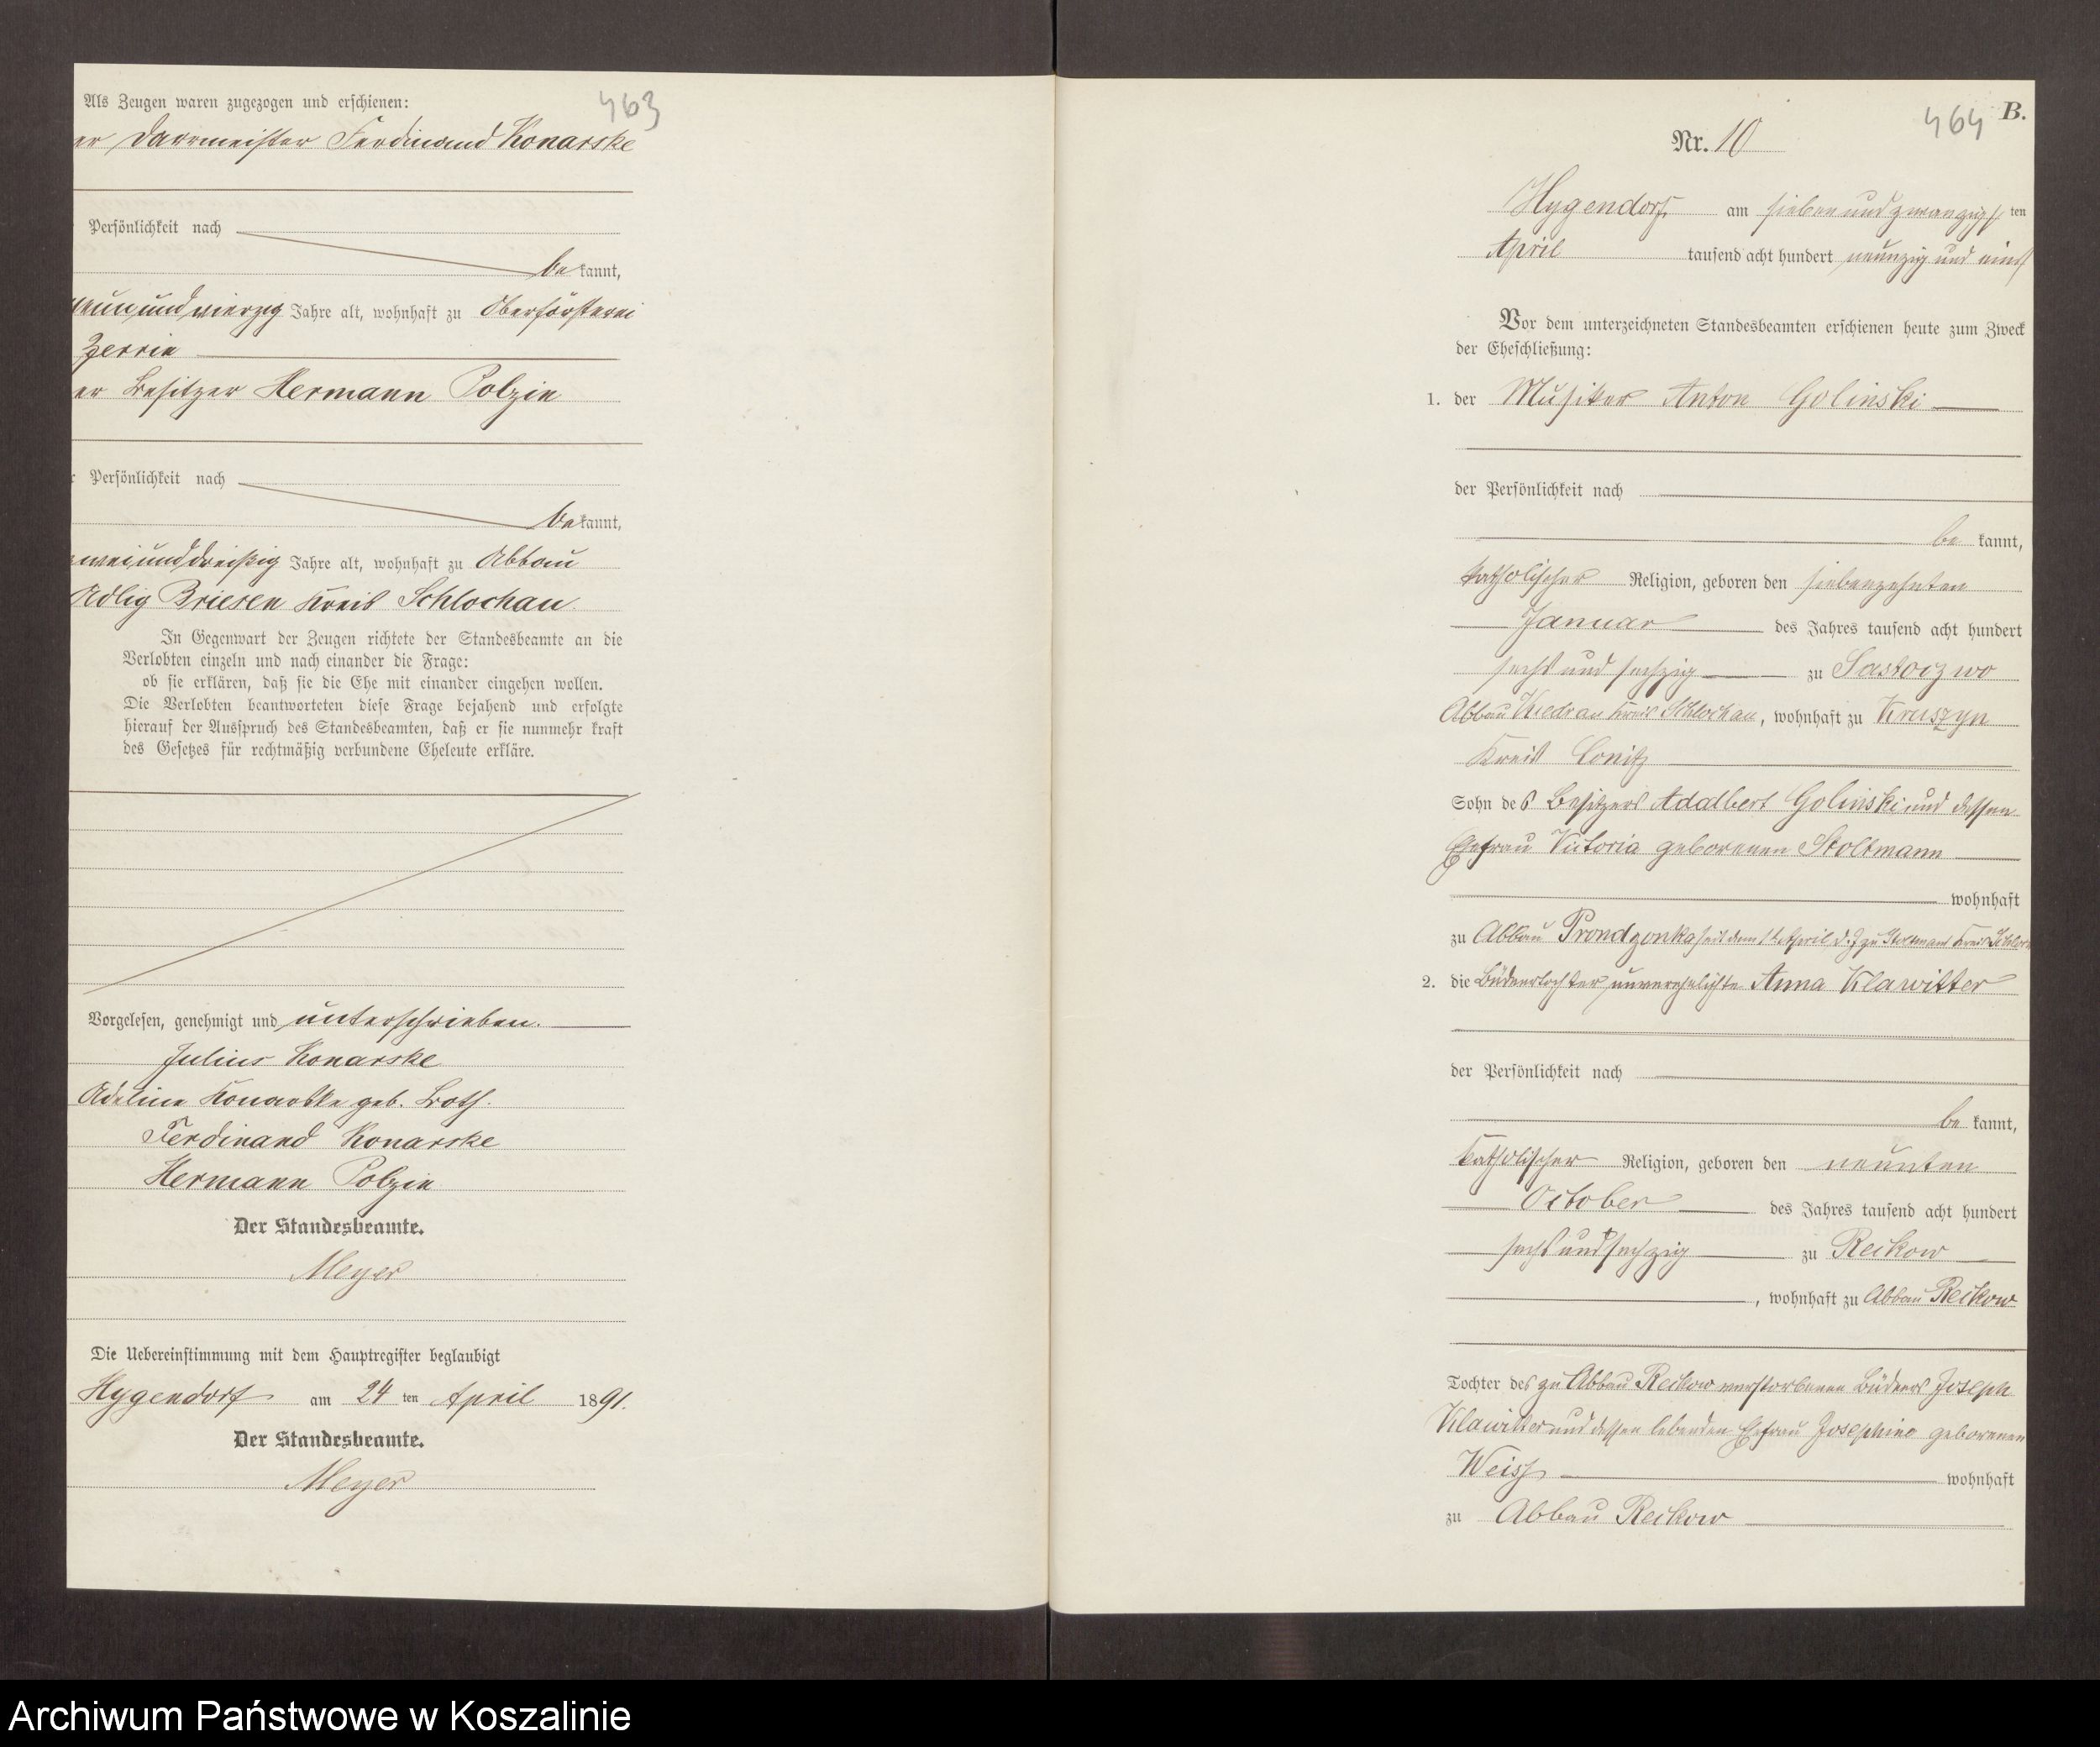 463
Als Zeugen waren zugezogen und erschienen:
er Darrmeister Ferdinand Konarske
Persönlichkeit nach
be kannt,
neunundvierzig Jahre alt, wohnhaft zu Oberförsterei
Zerrin
er Besitzer Hermann Polzin
r Persönlichkeit nach
be kannt,
zweiunddreißig Jahre alt, wohnhaft zu Abbau
Adlig Briesen Kreis Schlochau.
In Gegenwart der Zeugen richtete der Standesbeamte an die
Verlobten einzeln und nach einander die Frage:
ob sie erklären, daß sie die Ehe mit einander eingehen wollen.
Die Verlobten beantworteten diese Frage bejahend und erfolgte
hierauf der Ausspruch des Standesbeamten, daß er sie nunmehr kraft
des Gesetzes für rechtmäßig verbundene Eheleute erkläre.
Vorgelesen, genehmigt und unterschrieben.
Julius Konarske
Adeline Konarske geb. Both.
Ferdinand Konarske
Hermann Polzin
Der Standesbeamte.
Meyer
Die Uebereinstimmung mit dem Hauptregister beglaubigt
Hygendorf am 24 ten April 1891.
Der Standesbeamte.
Meyer
464 B.
Nr. 10
Hygendorf am sieben und zwanzigs ten
April tausend acht hundert neunzig und eins
Vor dem unterzeichneten Standesbeamten erschienen heute zum Zweck
der Eheschließung:
1. der Musiker Anton Golinski
der Persönlichkeit nach
be kannt,
katholischer Religion, geboren den siebenzehnten
Januar des Jahres tausend acht hundert
sechs und sechzig zu
Abbau Kiedrau Kreis Schlochau, wohnhaft zu Kruszyn
Kreis Conitz
Sohn des Besitzers Adalbert Golinski und dessen
Ehefrau Victoria geborenen Stoltmann
wohnhaft
zu Abbau Prondzonka seit dem 1t. April d. J. zu Kreis
2. die Büdnertochter unverehelichte Anna Klawitter
der Persönlichkeit nach
be kannt,
katholischer Religion, geboren den neunten
October des Jahres tausend acht hundert
sechs und sechzig zu Reckow
, wohnhaft zu Abbau Reckow
Tochter des zu Abbau Reckow verstorbenen Büdners Joseph
Klawitter und dessen lebenden Ehefrau Josephine geborenen
Weiss wohnhaft
zu Abbau Reckow
Archiwum Państwowe w Koszalinie